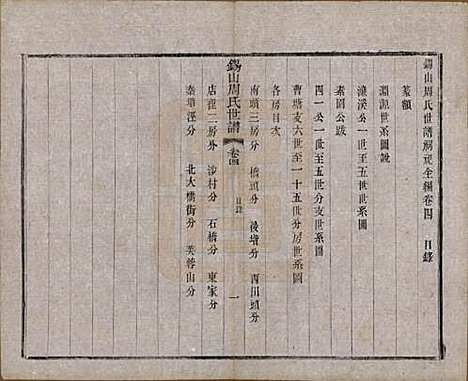 錫山周氏世譜觧祝全編卷四　目錄
篆額
淵源世系圖説
濂溪公一世至五世分系圖
素園公跋
四一公一世至五世分支世系圖
曹塘支六世至一十五世分房世系圖
各房目次
南頭三房分　橋頭分　後增分　西田頭分
店滙二房分　沙村分　石橋分　東家分
秦華涇分　北大橋街分　芙蓉山分
錫山周氏世譜　卷四　目錄　一